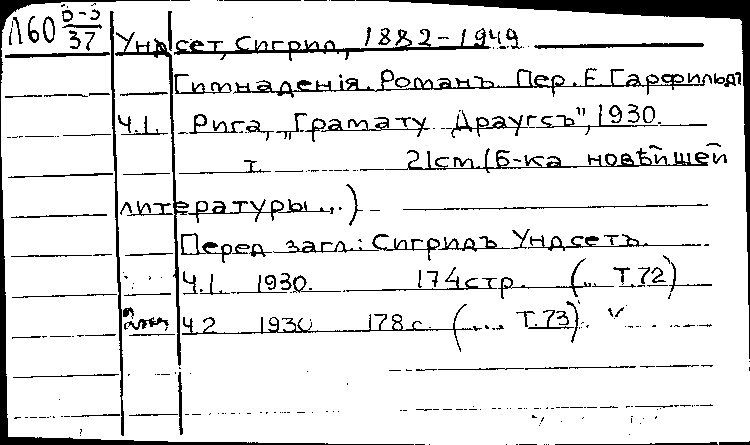 Л60 Б-3/37
Ундсет, Сигрид, 1882-1949
Гимнаденія. Романъ. Пер. Е. Гарфильдъ
Ч.1. Рига, „Грамату Драугсъ", 1930.
т. 21cm (Б-ка новѣйшей
литературы...)
Перед загл.: Сигридъ Ундсетъ.
Ч.1. 1930. 174стр. (... Т.72)
Ч.2 1930 178 с. (.... Т.73). v